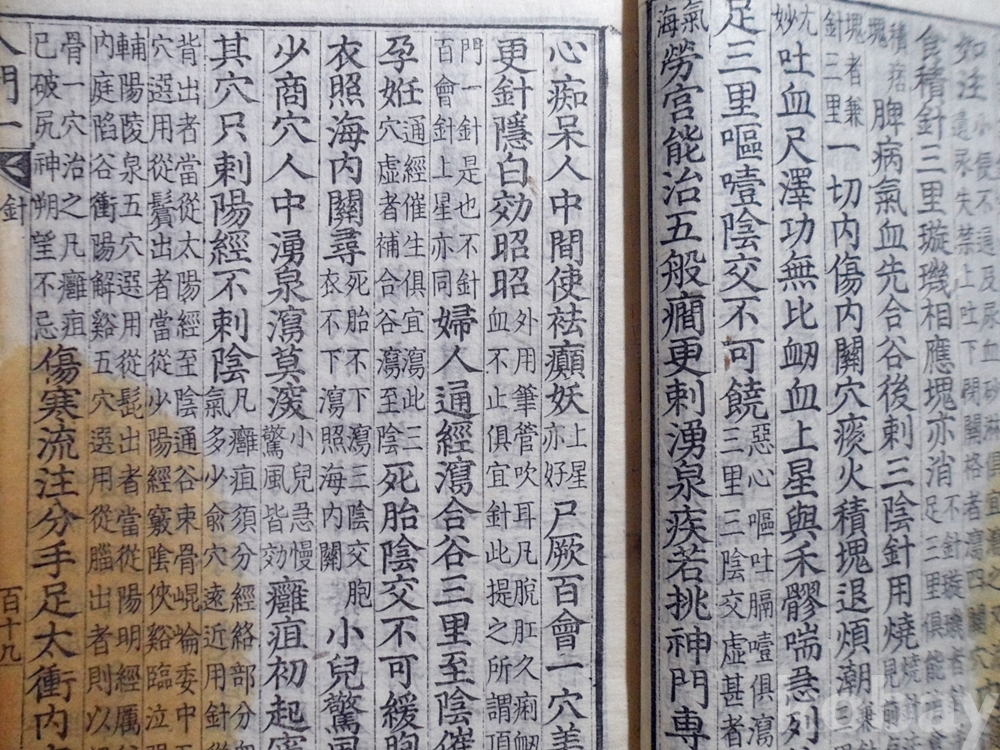 如注小便不通反尿血砂淋
遺尿失禁上吐下閉關格者瀉四關穴
食積針三里璇璣相應塊亦消
不針璇璣者針
足三里俱能
積痞
塊
脾病氣血先合谷後刺三陰針用燒
燒針
見前
塊者兼
針三里
一切內傷內關穴痰火積塊退煩潮
兼
三
尤
妙
吐血尺澤功無比衂血上星與禾髎喘急列
足三里嘔噎陰交不可饒
惡心嘔吐膈噎俱瀉
三里三陰交虛甚者
氣
海
勞宮能治五般癎更刺湧泉疾若挑神門專
心痴呆人中間使祛癲妖
上星
亦好
尸厥百會一穴美
更針隱白効昭昭
外用筆管吹耳凡脫肛久痢衂
血不止俱宜針此提之所謂頂
門一針是也不針
百會針上星亦同
婦人通經瀉合谷三里至陰催
孕妊
通經催生俱宜瀉此三
穴虛者補合谷瀉至陰
死胎陰交不可緩胞
衣照海內關尋
死胎不下瀉三陰交胞
衣不下瀉照海內關
小兒驚風
少商穴人中湧泉瀉莫深
小兒急慢
驚風皆効
癰疽初起審
其穴只刺陽經不刺陰
凡癰疽須分經絡部分血
氣多少俞穴遠近用針從
背出者當從太陽經至陰通谷束骨崐崙委中五
穴選用從鬢出者當從少陽經竅陰俠谿臨泣陽
輔陽陵泉五穴選用從髭出者當從陽明經厲
內庭陷谷衝陽解谿五穴選用從腦出者則以
骨一穴治之凡癰疽
已破尻神朔望不忌
傷寒流注分手足太衝內
入門一
針
百十九